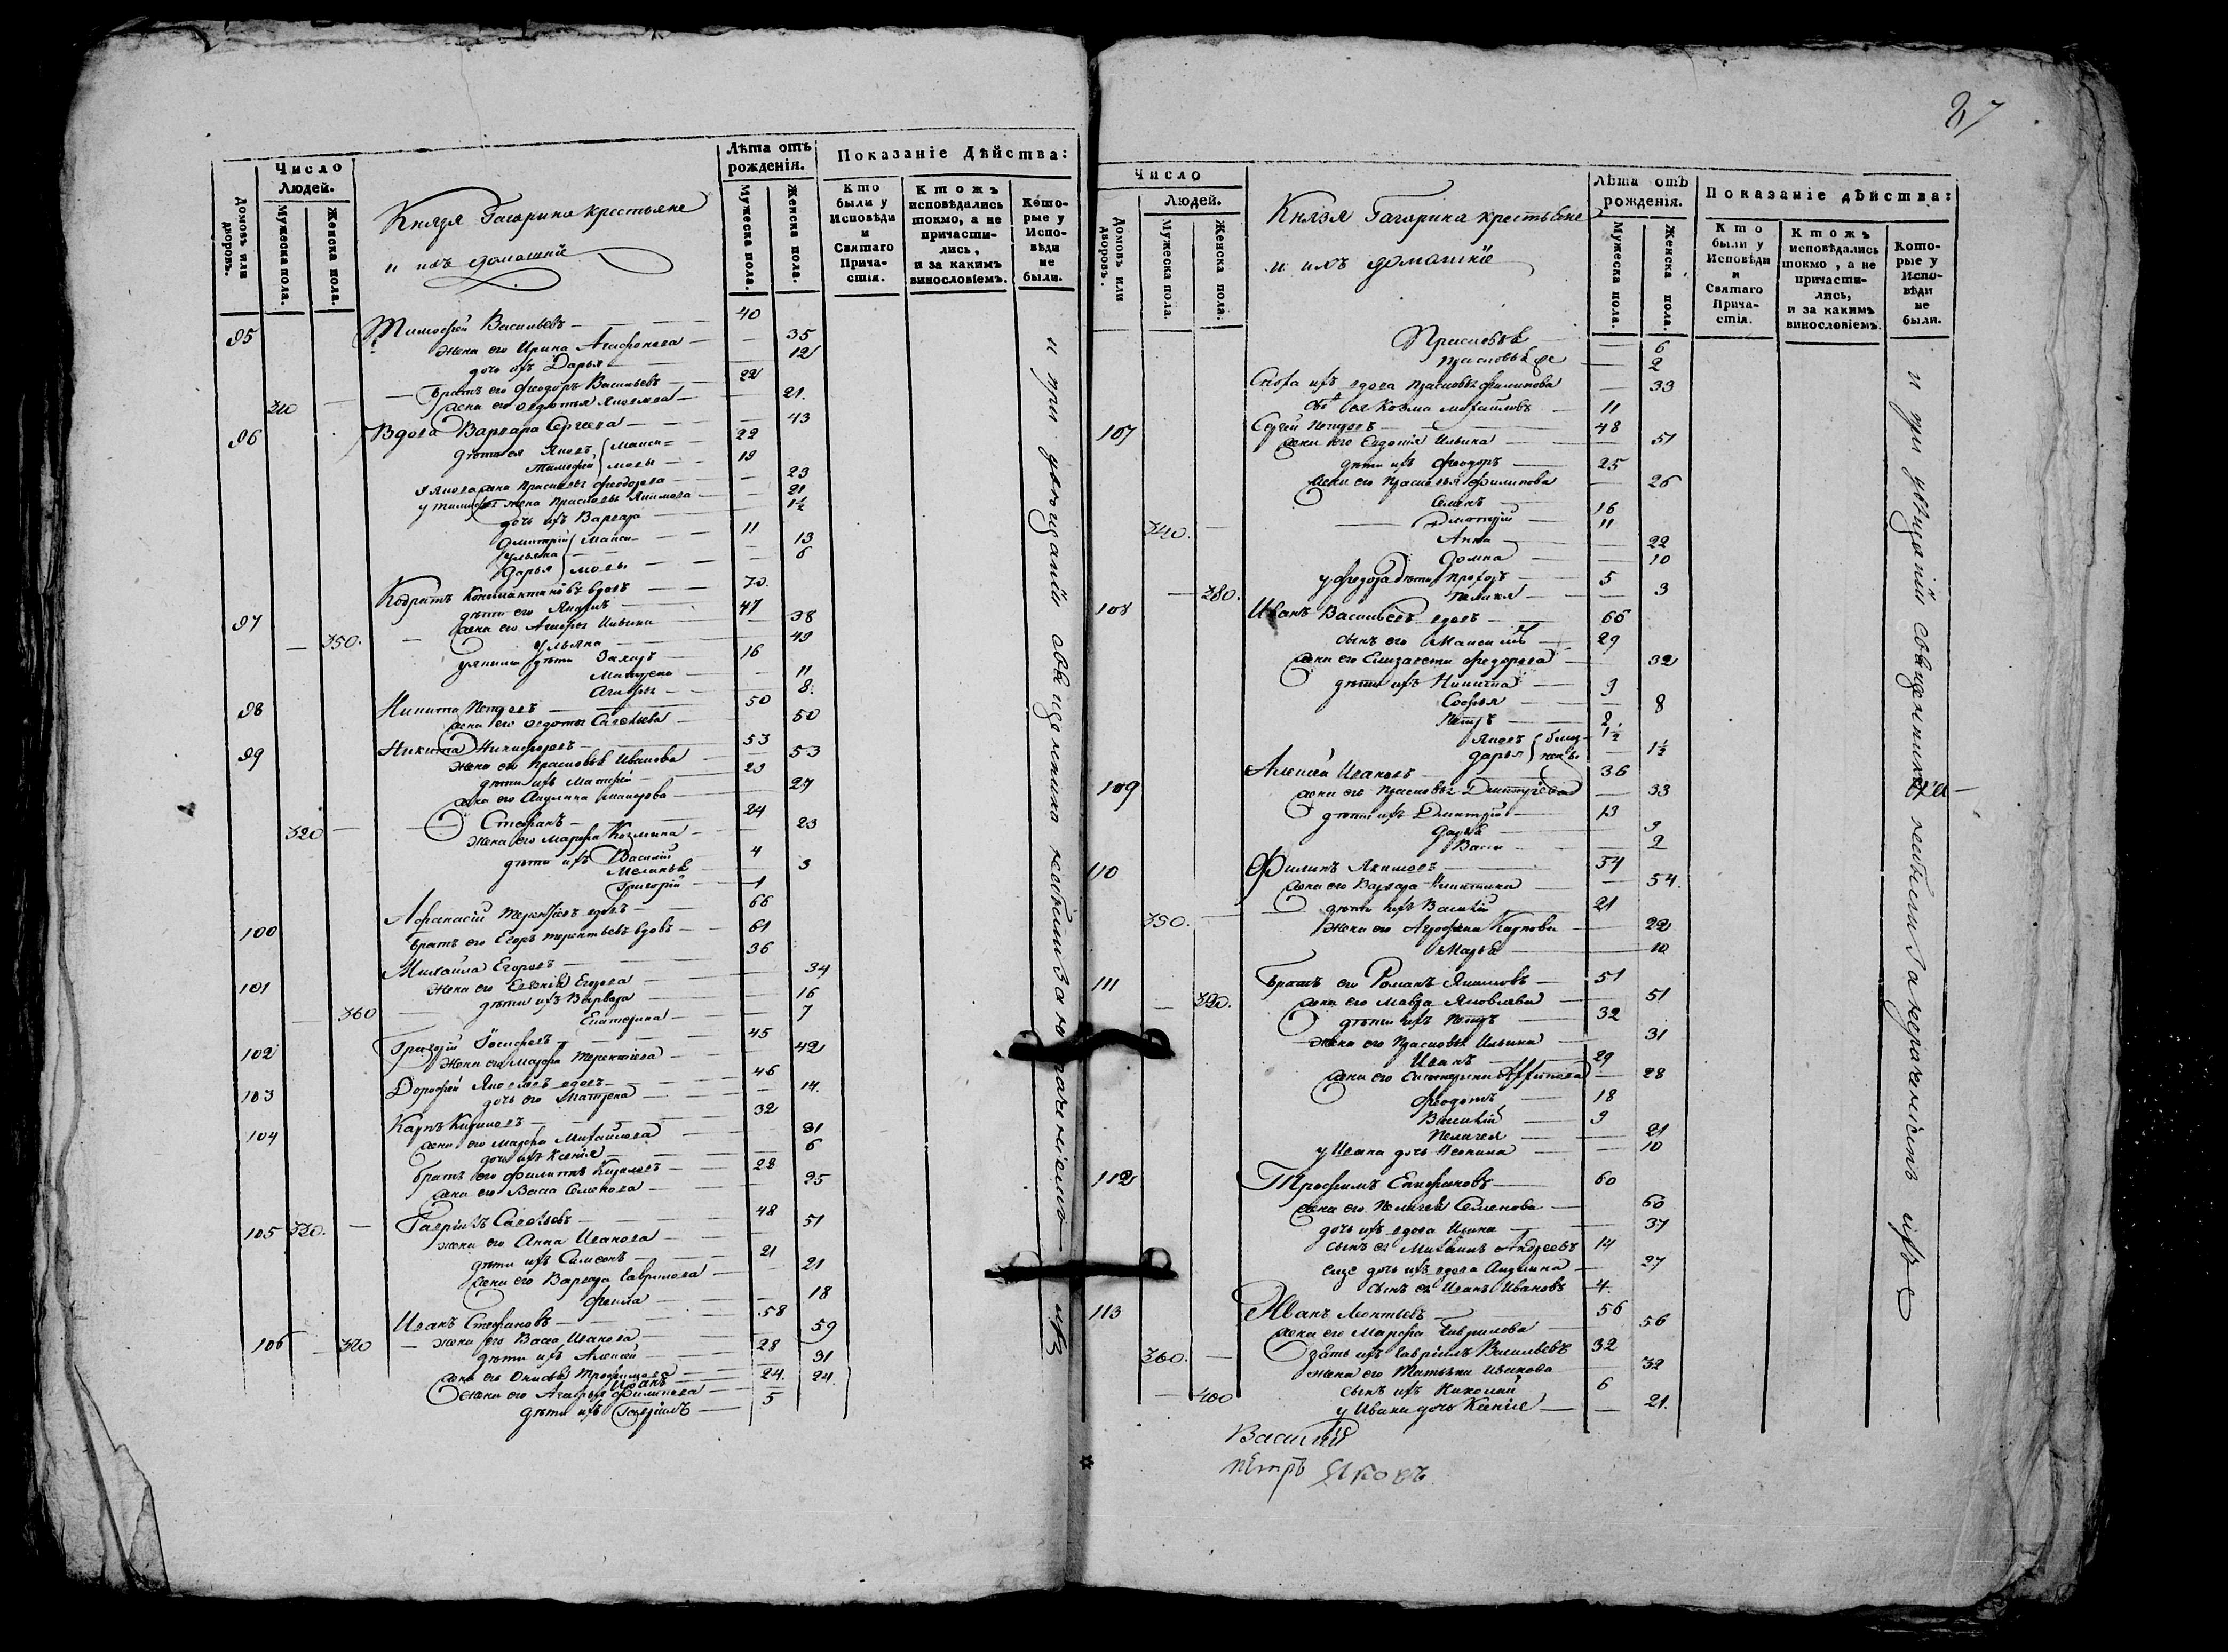 Число
Людей.
Домовъ или дворовъ.
Мужеска пола.
Женска пола.
Князя Гагарина крестьяне
и ихъ домашнiе
Лѣта отъ
рожденiя.
Мужеска пола.
Женска пола.
Показанiе Дѣйства:
Кто были у Исповѣди и Святаго Причастiя.
Ктожъ исповѣдались токмо, а не причастились, и за какимъ винословiемъ.
Которые у Исповѣди не были.
95 Тимофей Васильевъ 40
жена его Ирина Агафонова 35
дочь ихъ Дарья 12
братъ его Феодоръ Васильевъ 22
310 жена его Яковлева 21
96 Вдова Варвара Сергеева 43
дѣти ея Яковъ 22
Тимофей 19
у Якова жена Праскева Феодорова 23
у Тимофея жена Праскева Якимова 21
дочь ихъ Варвара 1½
Дмитрiй 11
Ульяна 13
Дарья 6
Кодратъ Константиновъ вдовъ 70
97 дѣти его Якимъ 47
жена его Агафья Ильина 38
350 Ульяна 49
у Якима дѣти Захаръ 16
Матрена 11
Агафья 8
98 Никита Петровъ 50
жена его Савельева 50
99 Никита Никифоровъ 53
жена его Прасковья Иванова 53
дѣти ихъ Матвей 29
жена его Акулина 27
320 Стефанъ 24
жена его Марфа Козмина 23
дѣти ихъ Василiй 4
Меланья 3
Григорiй 1
100 Афанасiй Терентьевъ вдовъ 66
братъ его Егоръ Терентьевъ вдовъ 61
101 Михайла Егоровъ 36
жена его Евгенiя Егорова 34
360 дѣти ихъ Варвара 16
Екатерина 7
102 Григорiй Iосифовъ 45
жена его Марфа Терентiева 42
103 Дорофей Яковлевъ вдовъ 46
дочь его Матрена 14
104 Карпъ Кириловъ 32
жена его Марфа Михайлова 31
дочь ихъ Ксенiя 6
братъ его Филиппъ Кириловъ 28
жена его Васса Семенова 25
105 330 Гаврiилъ Савельевъ 48
жена его Анна Иванова 51
дѣти ихъ Самсонъ 21
жена его Варвара Гаврилова 21
Фекла 18
106 Иванъ Стефановъ 58
370 жена его Васса Иванова 59
дѣти ихъ Алексей 28
жена его Трофимова 31
Иванъ 24
жена его Агафья Филипова 24
дѣти ихъ Гаврiилъ 5
и при увѣщанiи священника небыли за нераченiемъ ихъ
87
Число
Людей.
Домовъ или дворовъ.
Мужеска пола.
Женска пола.
Князя Гагарина крестьяне
и ихъ домашнiе
Лѣта отъ
рожденiя.
Мужеска пола.
Женска пола.
Показанiе дѣйства:
Кто были у Исповѣди и Святаго Причастiя.
Ктожъ исповѣдались токмо, а не причастились, и за какимъ винословiемъ.
Которые у Исповѣди не были.
Прасковья 6
Прасковья 2
Сноха ихъ вдова Прасковья Филипова 33
сынъ ея Козма Михайловъ 11
107 Сергей Петровъ 48
жена его Евдокiя Ильина 51
дѣти ихъ Феодоръ 25
жена его Праскевья Филипова 26
Семенъ 16
340 Дмитрiй 11
Анна 22
Домна 10
у Федора дѣти Прохоръ 5
380 3
108 Иванъ Васильевъ вдовъ 66
сынъ его Максимъ 29
жена его Елизавета Федорова 32
дѣти ихъ Никита 9
Софья 8
Петръ 2
Яковъ 1½
Дарья 1½
109 Алексей Ивановъ 36
жена его Прасковья Дмитрiева 33
дѣти ихъ Дмитрiй 13
Дарья 9
Васса 2
110 Филипъ Якимовъ 54
жена его Варвара Никитина 54
дѣти ихъ Василiй 21
350 жена его Агрофена Карпова 22
Марья 10
111 Братъ его Романъ Якимовъ 51
390 жена его Мавра Яковлева 51
дѣти ихъ Петръ 32
жена его Прасковья Ильина 31
Иванъ 29
жена его 28
Феодотъ 18
Василiй 9
Пелагея 21
у Ивана дочь 10
112 Трофимъ Епифановъ 60
жена его Пелагея Семенова 60
дочь ихъ вдова 37
сынъ ея Михаилъ Андреевъ 14
еще дочь ихъ вдова Акулина 27
сынъ ея Иванъ Ивановъ 4
113 Иванъ Леонтьевъ 56
жена его Марфа Гаврилова 56
360 зать ихъ Гаврiилъ Васильевъ 32
жена его Татьяна Иванова 32
400 сынъ ихъ Николай 6
у Ивана дочь Ксенiя 21
и при увѣщанiи священника небыли за нераченiемъ ихъ
Василiй
Петръ Яковъ